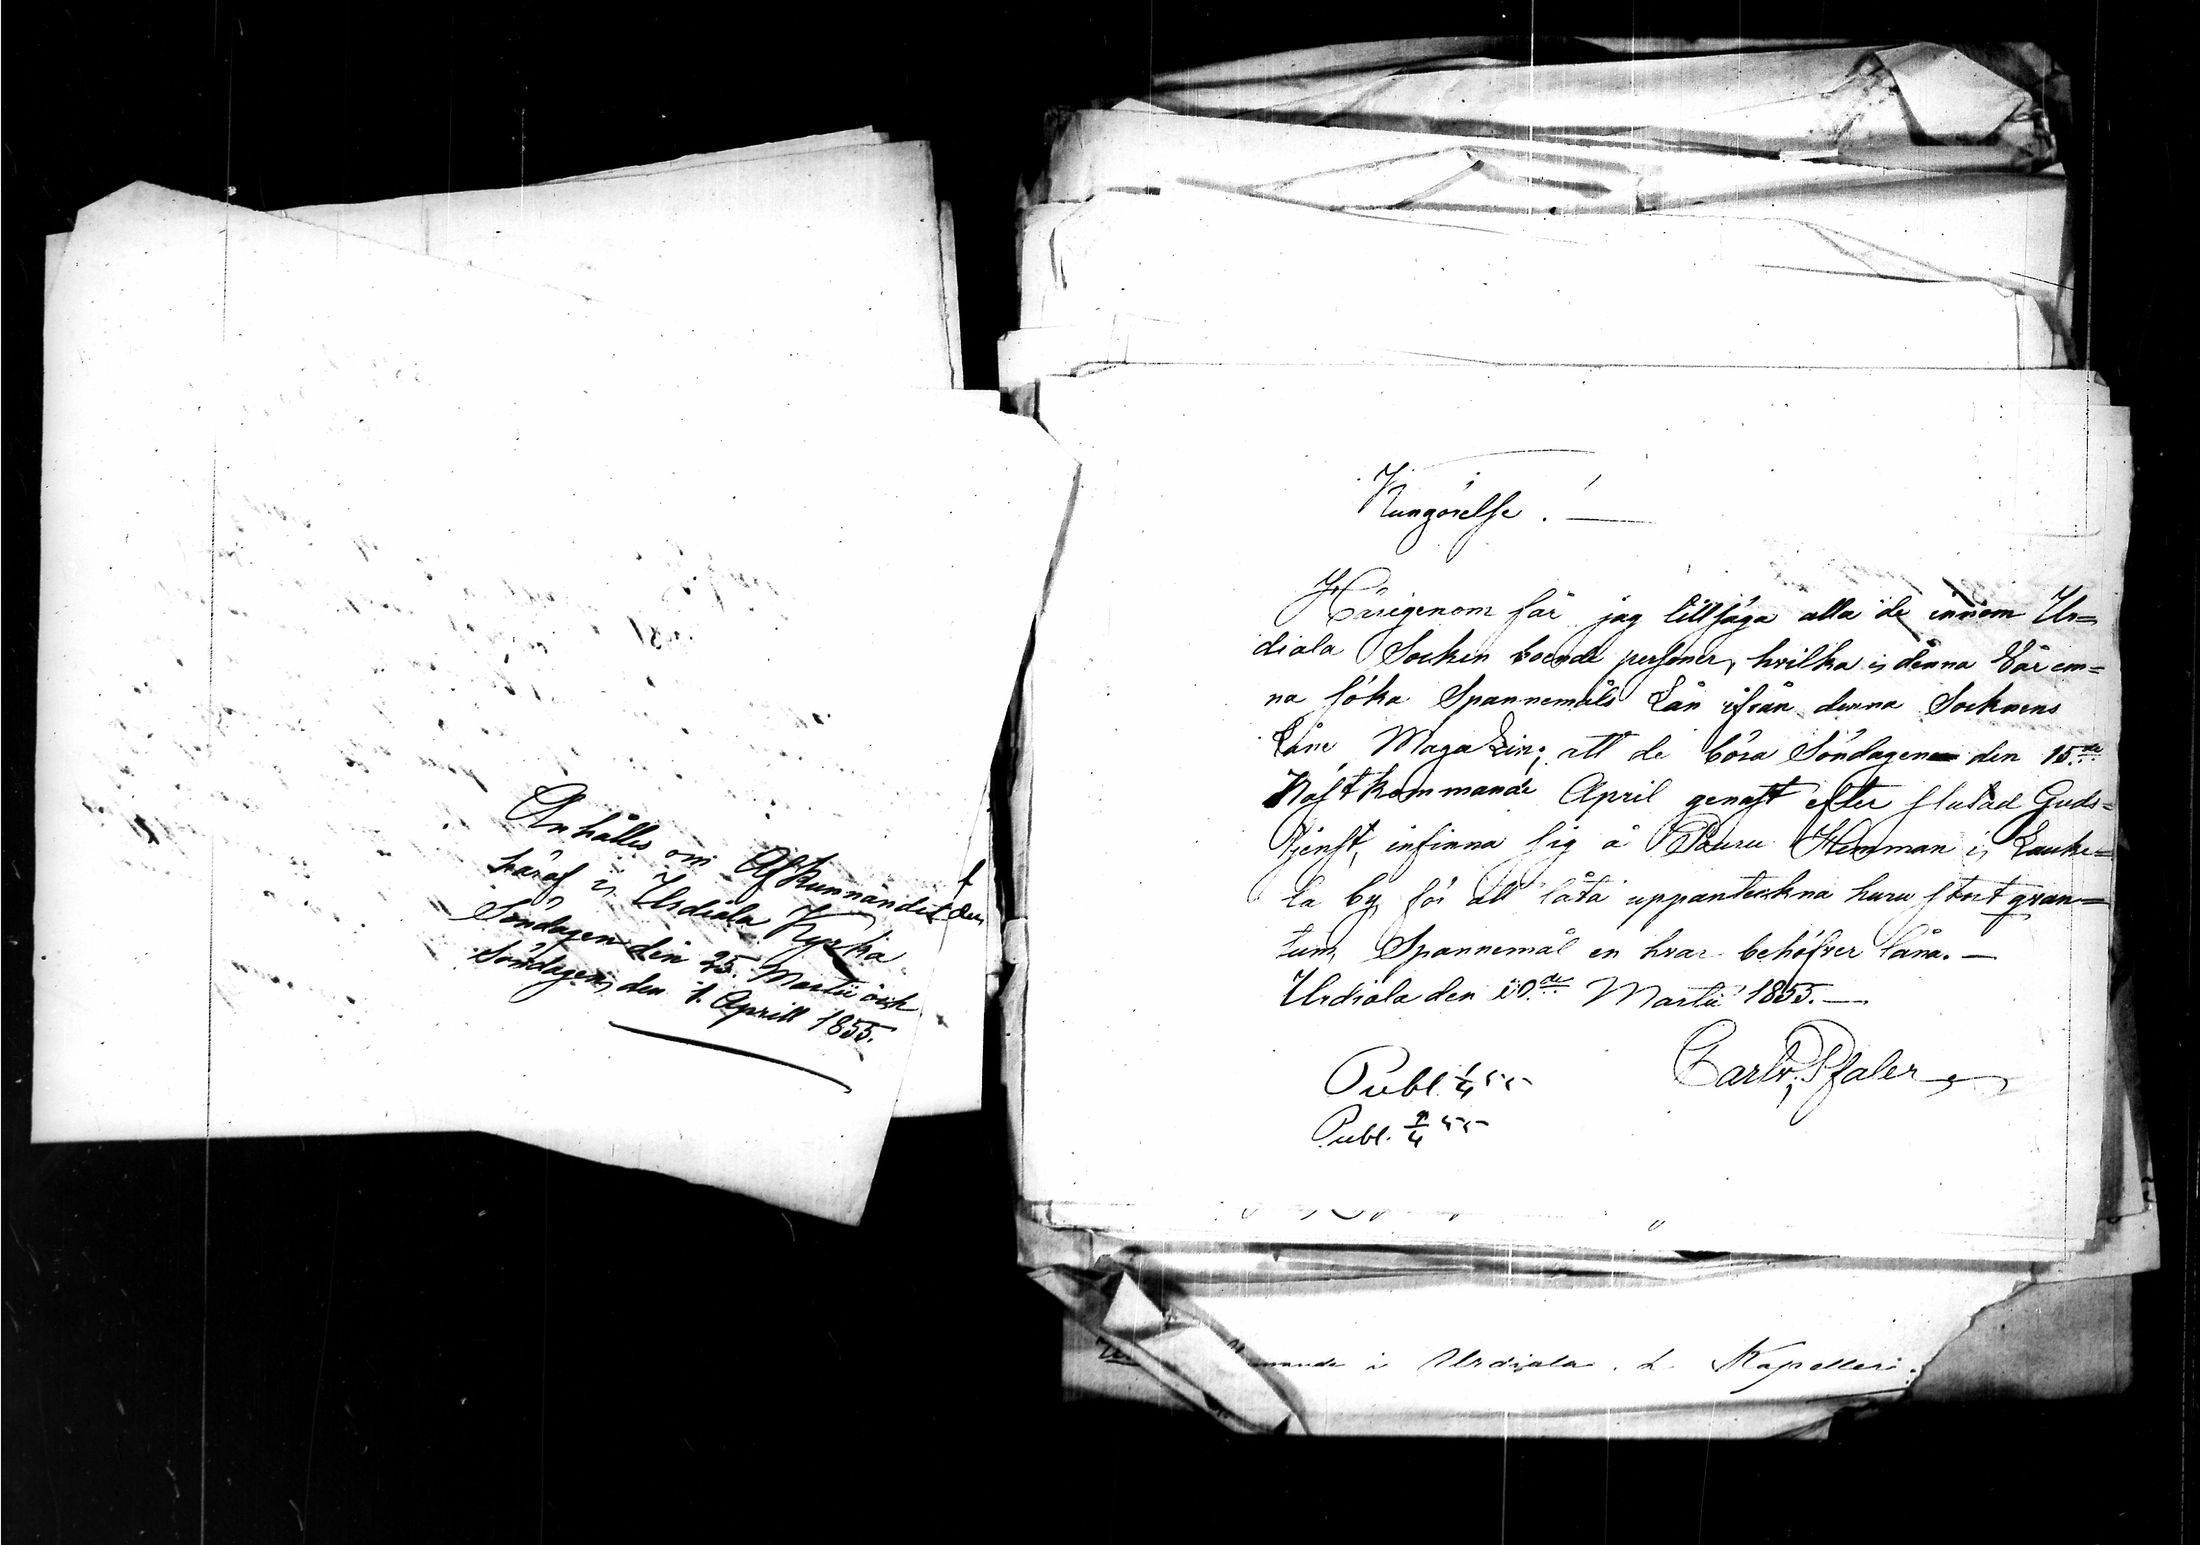 Anhålles om Afkunnandet
häraf i Urdiala Kyrka
Söndagen den 25. Martii och
Söndagen den 1. Aprill 1855.
Kungörelse. —
Härigenom får jag tillsäga alla de innom Ur=
diala Socken boende personer, hvilka i denna Vår äm=
na söka Spannemåls Lån ifrån denna Socknens
Låne Magazin; att de böra Söndagen den 15de
Näst kommande April genast efter slutad Guds=
tjenst, infinna sig å Pauru Hemman i Lauke=
la by för att låta uppanteckna huru stort qvan=
tum Spannemål en hvar behöfver låna. —
Urdiala den 10de Martii 1855. —
Carl v; Pfaler
Publ. 1/4 55
Publ. 9/4 55
i Urdiala. Kapelleri